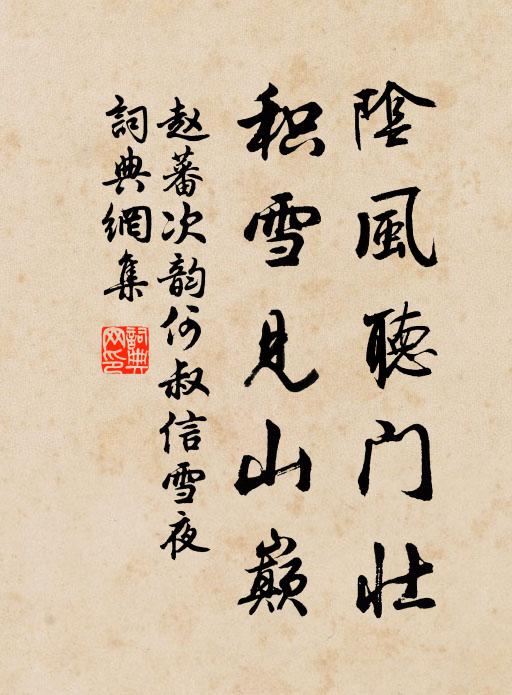 陰風聽门壮
积雪見山巔
赵蕃次韵何叔信雪夜
詞典網集
詞典網印